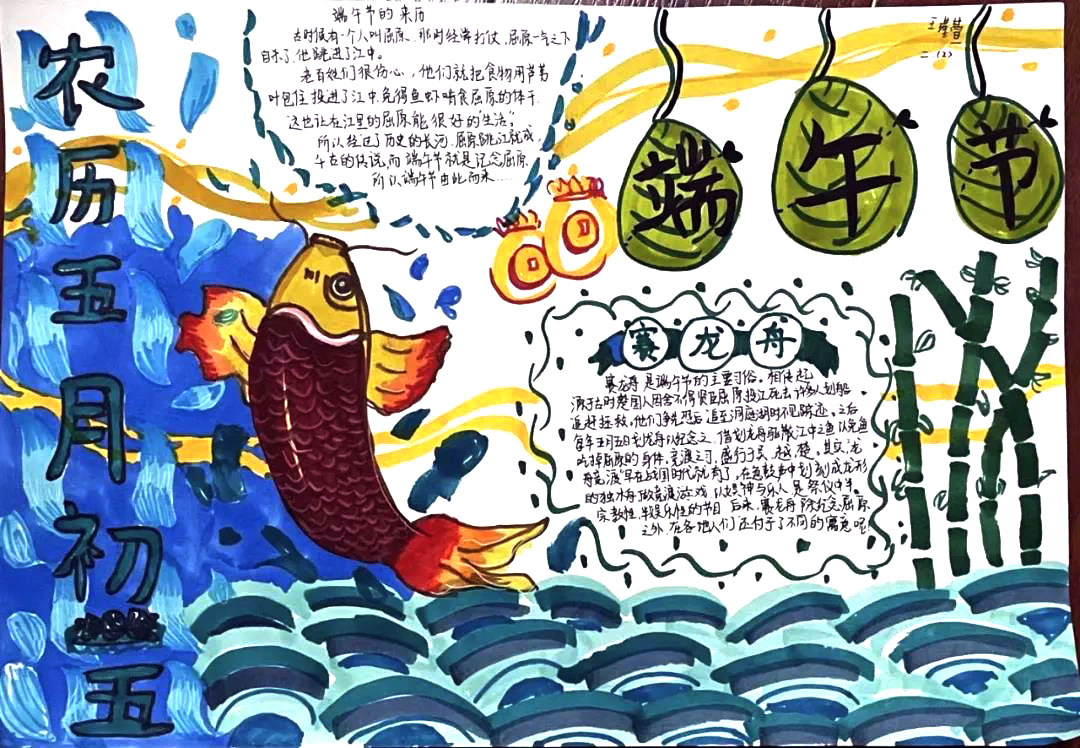 农历五月初五
端午节的来历
古时候有一个人叫屈原,那时经常打仗,屈原一气之下
自杀了,他跳进了江中。
老百姓们很伤心,他们就把食物用芦苇
叶包住投进了江中,免得鱼虾啃食屈原的体干,
这也让在江里的屈原能很好的“生活”,
所以经过了历史的长河,屈原跳江就成
千古的传说,而端午节就是记念屈原
所以端午节由此而来……
二(2)
端午节
赛龙舟
赛龙舟是端午节的主要习俗。相传起
源于古时楚国人因舍不得贤臣屈原投江死去,许多人划船
追赶拯救。他们争先恐后,追至洞庭湖时不见踪迹。之后
每年五月五日划龙舟以纪念之。借划龙舟驱散江中之鱼,以免鱼
吃掉屈原的身体。竞渡之习,盛行于吴、越、楚。其实,“龙
舟竞渡”早在战国时代就有了,在急鼓声中划刻成龙形
的独木舟,做竞渡游戏,以娱神与乐人,是祭仪中半
宗教性、半娱乐性的节目。后来,赛龙舟除纪念屈原
之外,在各地人们还付于了不同的寓意呢